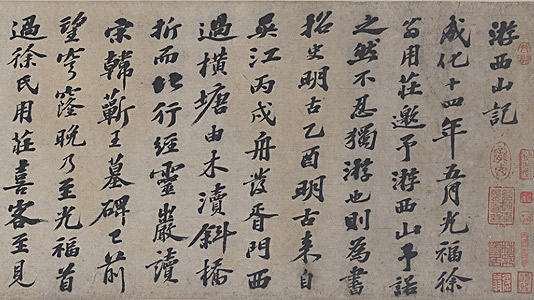 游西山記
成化十四年五月光福徐
翁用莊邀予游西山予諾
之然不忍獨游也則為書
招史明古乙酉明古来自
吴江丙戌舟發胥門西
過横塘由木瀆斜橋
折而北行經靈巖讀
宋韓蘄王墓碑已前
望穹窿晚乃至光福首
過徐氏用莊喜客至見